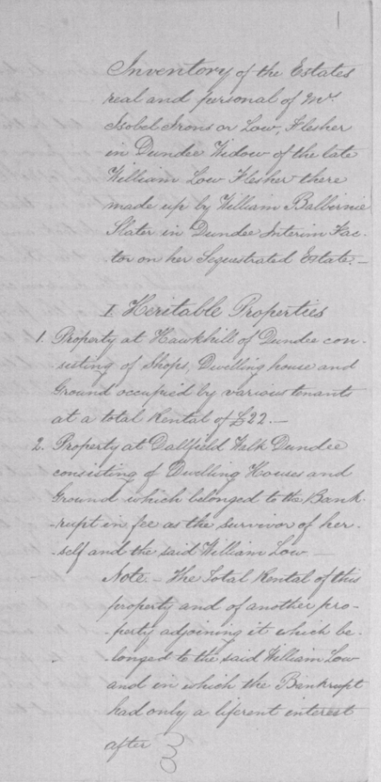 1
Inventory of the Estates
real and personal of Mrs
Isobel Irons or Low, Flesher
in Dundee Widow of the late
William Low Flesher there
made up by William Balbirnie
Slater in Dundee Interim Fac-
tor on her Sequestrated Estate. -
I. Heritable Properties
1. Property at Hawkhill of Dundee con-
sisting of Shops, Dwelling house and
Ground occupied by various tenants
at a total Rental of £22. -
2. Property at Dallfield Walk Dundee
consisting of Dwelling Houses and
Ground which belonged to the Bank-
-rupt in fee as the survivor of her-
-self and the said William Low. -
Note. - The Total Rental of this
property and of another pro-
-perty adjoining it which be-
-longed to the said William Low
and in which the Bankrupt
had only a liferent interest
after